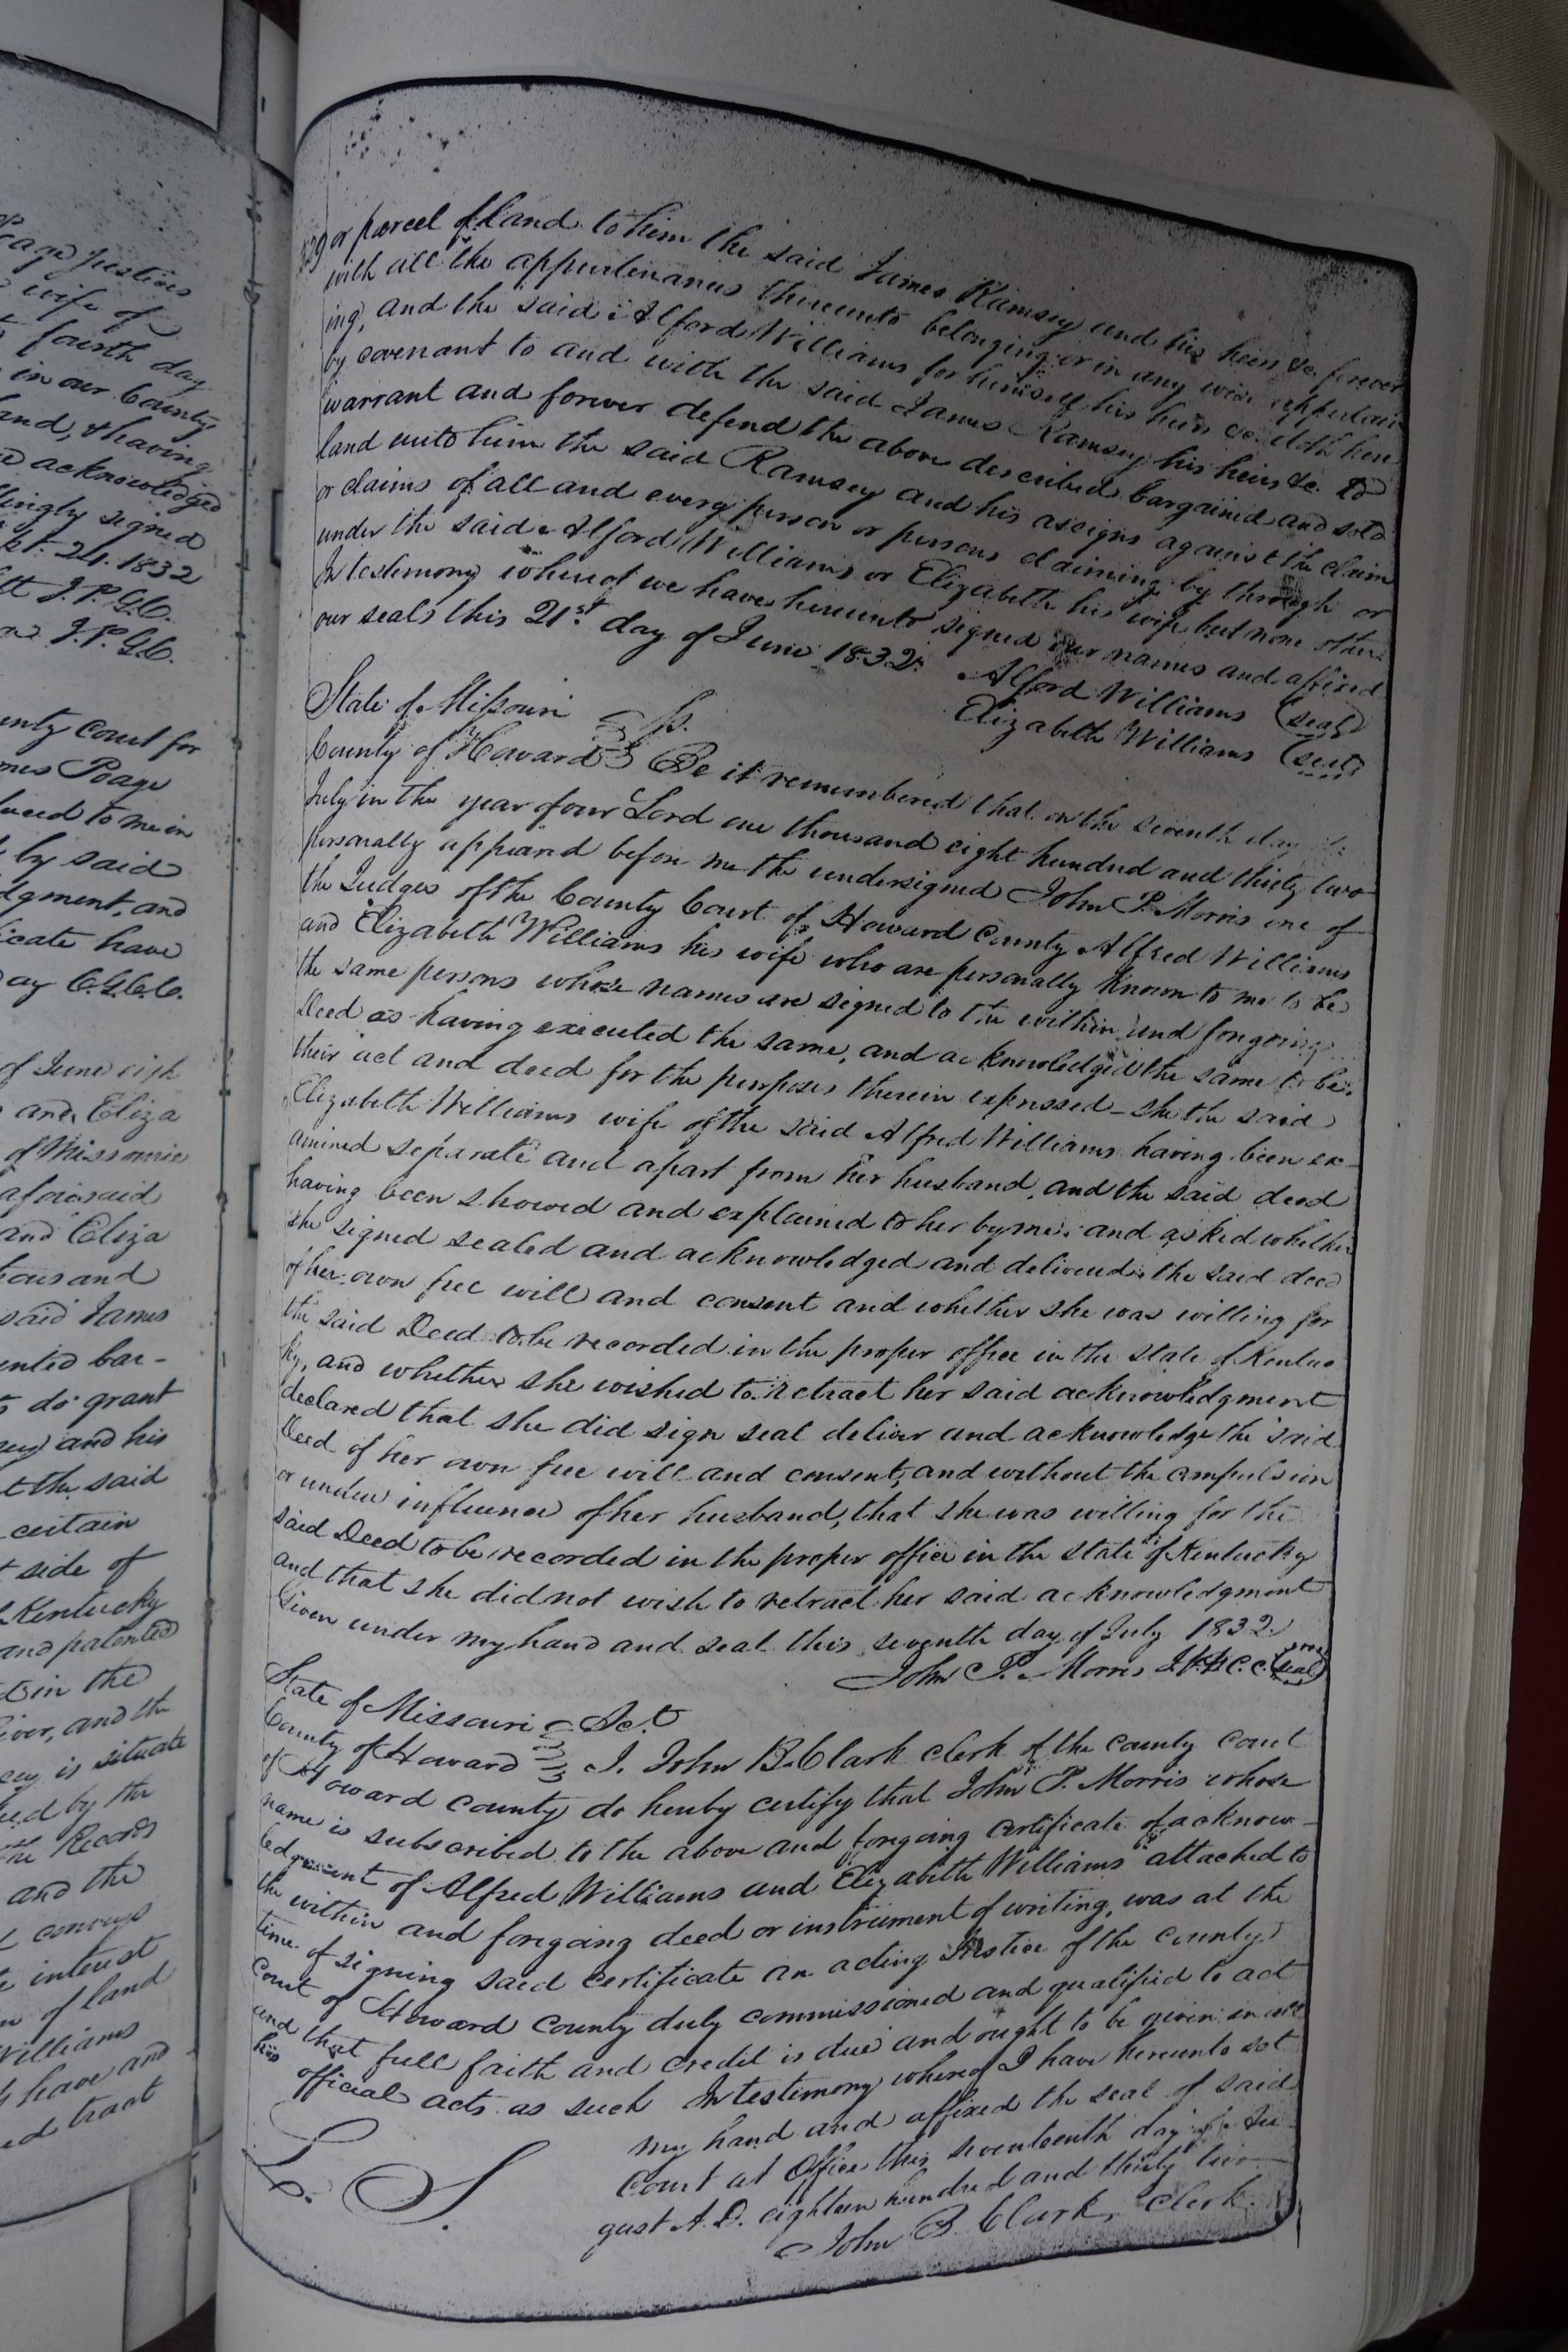 Page Justices
wife of
fourth day
in our County
and, & having
acknowledged
lingly signed
pt. 24. 1832
J.P.G.C.
J.P.G.C.
unty Court for
mes Poage
duced to me in
by said
dgment, and
icate have
ay C.G.C.C.
of June eigh
and Eliza
of Missourie
aforesaid
and Eliza
housand
said James
ented bar-
do grant
sey and his
t the said
certain
t side of
Kentucky
and patented
in the
iver, and the
sey is situate
ed by the
the Records
and the
conveys
interest
of land
Williams
have and
ed tract
429 or parcel of land to him the said James Ramsey and his heirs &c. forever
with all the appurtenances thereunto belonging or in any wise appertain
ing, and the said Alford Williams for himself his heirs &c. doth here
by covenant to and with the said James Ramsey his heirs &c. to
warrant and forever defend the above described bargained and sold
land unto him the said Ramsey and his assigns against the claim
or claims of all and every person or persons claiming by through or
under the said Alford Williams or Elizabeth his wife but none other
In testimony whereof we have hereunto signed our names and affixed
our seals this 21st day of June 1832. Alford Williams (seal)
Elizabeth Williams (seal)
State of Missouri
County of Howard Ss. Be it remembered that on the seventh day
July in the year of our Lord one thousand eight hundred and thirty two
personally appeared before me the undersigned John P. Morris one of
the Judges of the County Court of Howard County Alfred Williams
and Elizabeth Williams his wife who are personally known to me to be
the same persons whose names are signed to the within and foregoing
Deed as having executed the same, and acknowledged the same to be
their act and deed for the purposes therein expressed - she the said
Elizabeth Williams wife of the said Alfred Williams having been ex-
amined separate and apart from her husband, and the said deed
having been showed and explained to her by me; and asked whether
she signed sealed and acknowledged and delivered the said deed
of her own free will and consent and whether she was willing for
the said Deed to be recorded in the proper office in the state of Kentuc
ky, and whether she wished to retract her said acknowledgment
declared that she did sign seal deliver and acknowledge the said
Deed of her own free will and consent, and without the compulsion
or under influence of her husband, that she was willing for the
said Deed to be recorded in the proper office in the state of Kentucky
and that she did not wish to retract her said acknowledgment
Given under my hand and seal this seventh day of July 1832.
John P. Morris J.H.C.C. (seal)
State of Missouri Sc.t
County of Howard I. John B. Clark clerk of the county court
of Howard county do hereby certify that John P. Morris whose
name is subscribed to the above and foregoing certificate of acknow-
ledgment of Alfred Williams and Elizabeth Williams attached to
the within and foregoing deed or instrument of writing, was at the
time of signing said certificate an acting Justice of the county
court of Howard County duly commissioned and qualified to act
and that full faith and credit is due and ought to be given in all
his official acts as such In testimony whereof I have hereunto set
my hand and affixed the seal of said
Court at Office this seventeenth day of Au
gust A.D. eighteen hundred and thirty two
L. S.
John B. Clark, Clerk.